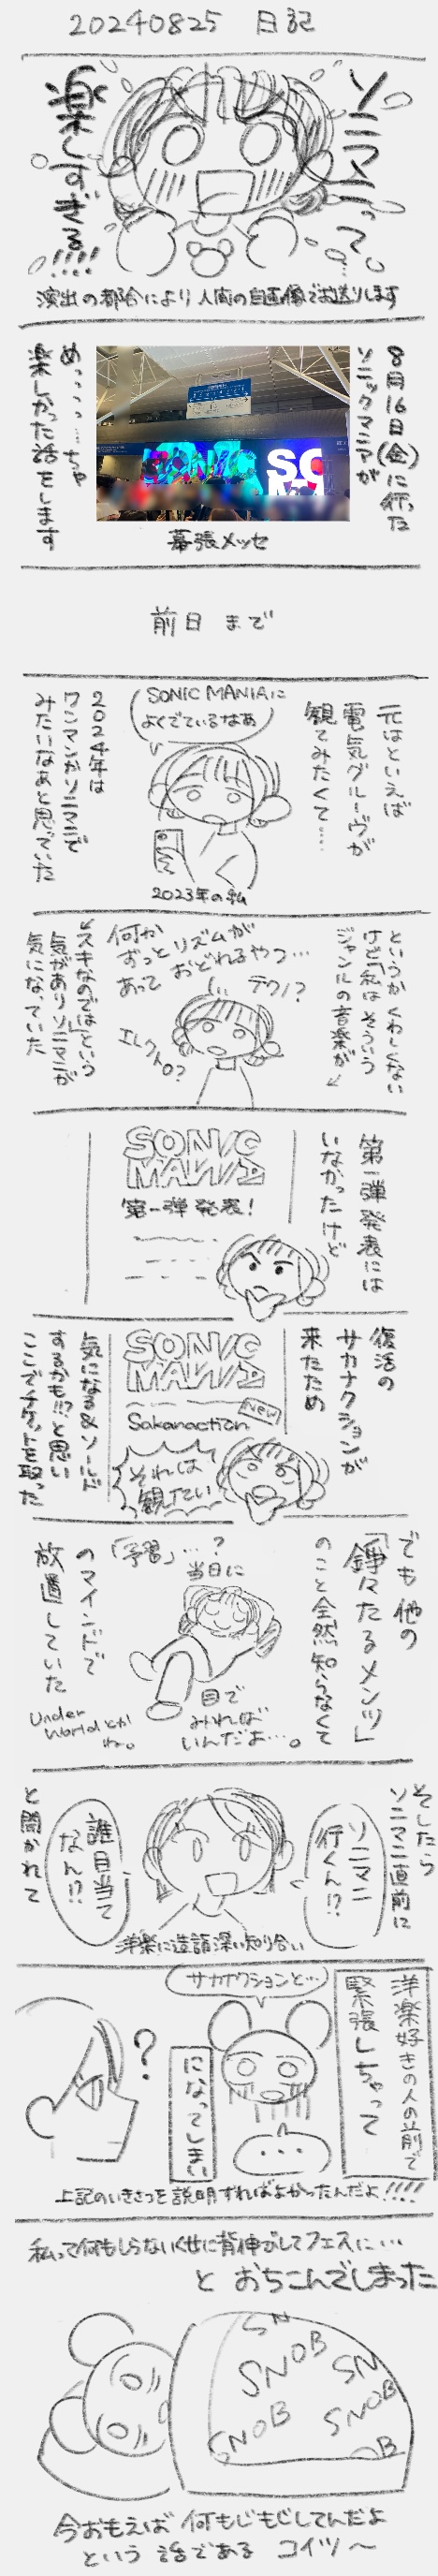 20240825 日記
ソニマニって…
楽しすぎる!!!!
演出の都合により人間の自画像でお送りします
8月16日(金)に行った
ソニックマニアが
めっっっっ…ちゃ
楽しかった話をします
SONIC
SO
幕張メッセ
前日 まで
元はといえば
電気グルーヴが
観てみたくて……
SONIC MANIAに
よくでているなあ
2023年の私
2024年は
ワンマンかソニマニで
みたいなあと思っていた
というかくわしくない
けど「私はそういう
ジャンルの音楽が
何か
ずっとリズムが
あって おどれるやつ…
テクノ?
エレクトロ?
スキなのでは」という
気がありソニマニが
気になっていた
第一弾発表には
いなかったけど
SONIC
MANIA
第一弾 発表!
復活の
サカナクションが
来たため
SONIC
MANIA
New
Sakanaction
それは
観たい
気になる&ソールド
するかも!?と思い
ここでチケットを取った
でも他の
「錚々たるメンツ」
のこと全然知らなくて
「予習」…?
当日に
目で
みれば
いんだよ…。
のマインドで
放置していた
Under
Worldとか
ね。
そしたら
ソニマニ直前に
ソニマニ
行くん!?
誰目当て
なん!?
と聞かれて
洋楽に造詣深い知り合い
洋楽好きの人の前で
緊張しちゃって
サカナクションと…
…
?
になってしまい
上記のいきさつを説明すればよかったんだよ!!!!
私って何もしらないくせに背伸びしてフェスに…
と おちこんでしまった
SN
SNOB
SN
SNOB
SNOB
B
今おもえば 何もじもじしてんだよ
という 話である コイツ～